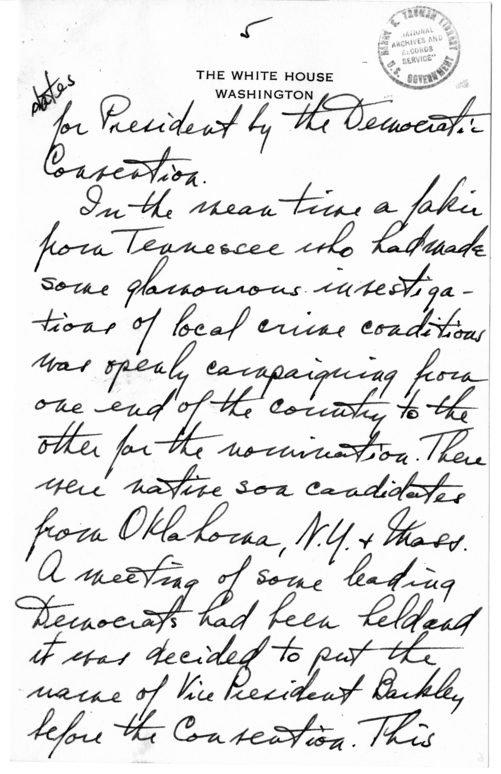 5
HARRY S. TRUMAN LIBRARY
"NATIONAL
ARCHIVES AND
RECORDS
SERVICE"
U.S. GOVERNMENT
THE WHITE HOUSE
WASHINGTON
for President by the Democratic
Convention.
In the mean time a fakir
from Tennessee who had made
some glamourous investiga-
tions of local crime conditions
was openly campaigning from
one end of the country to the
other for the nomination. There
were native son candidates
from Oklahoma, N.Y. & Mass.
A meeting of some leading
Democrats had been held and
it was decided to put the
name of Vice President Barkley
before the Convention. This